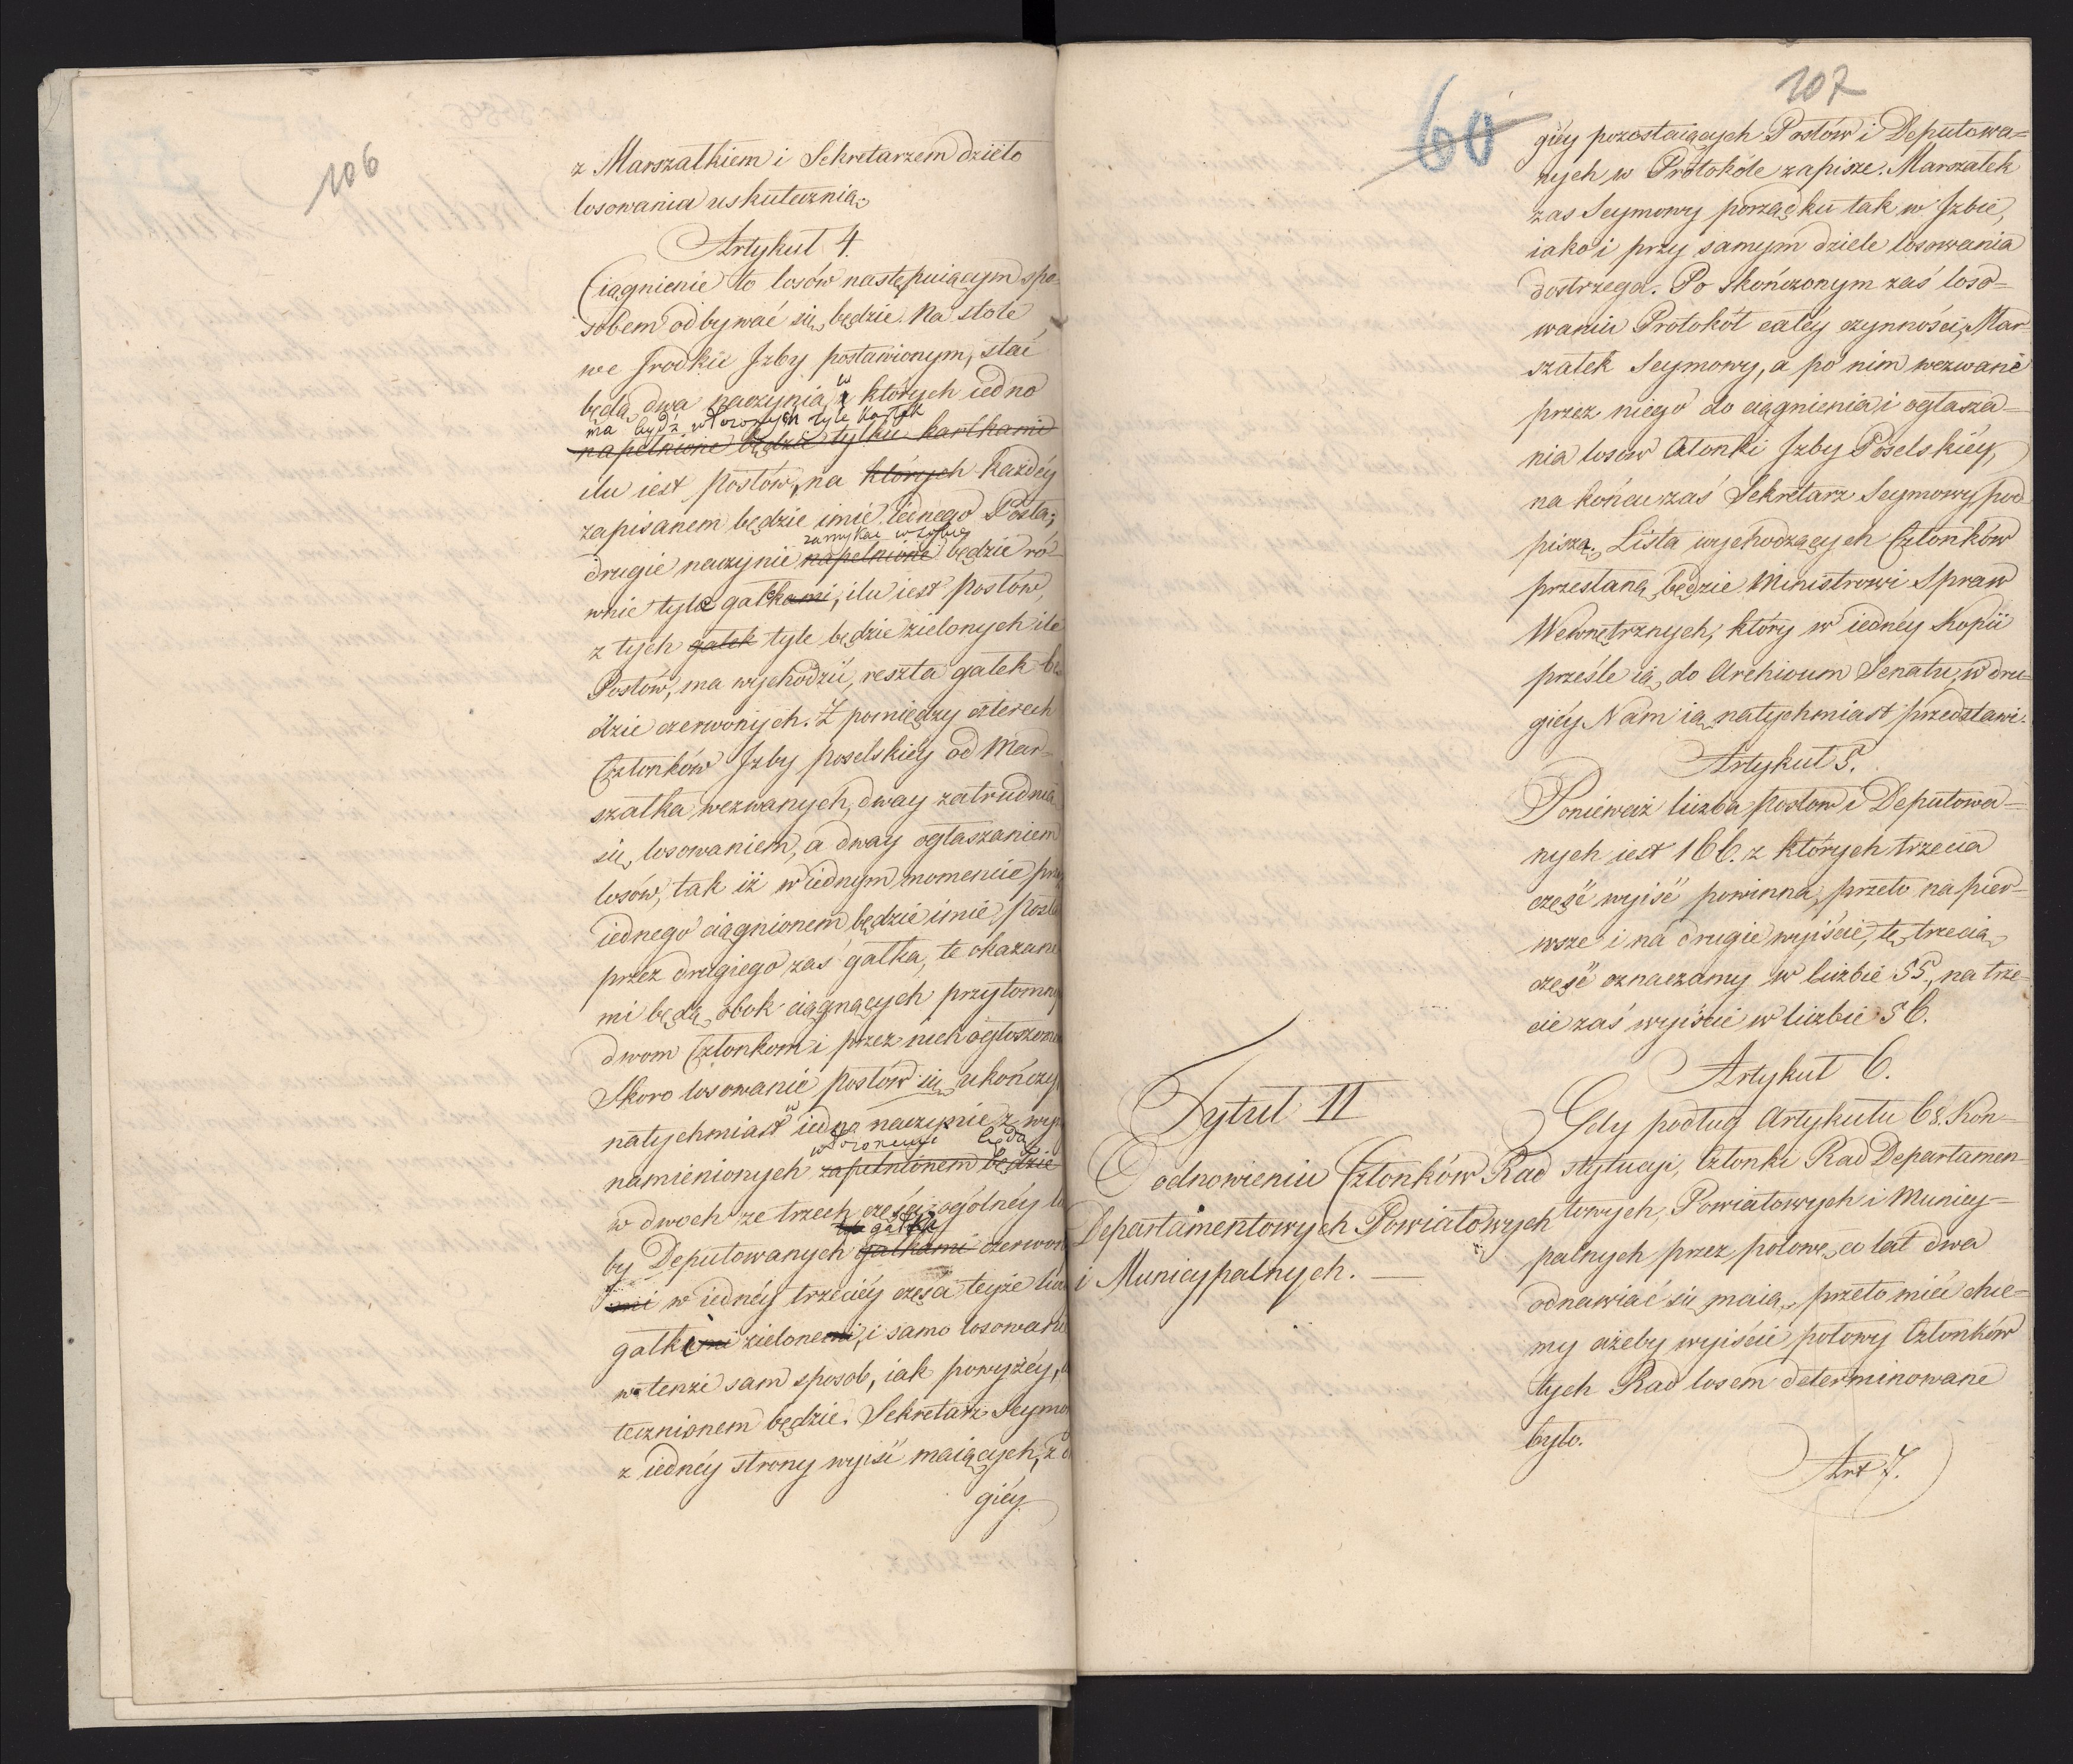 106
z Marszałkiem i Sekretarzem dzieło
losowania uskutecznią.
Artykuł 4.
Ciągnienie to losów następuiącym spo-
sobem odbywać się będzie. Na stole
we srodku Izby postawionym, stać
będą dwa naczynia w których iedno
ma bydź włożonych tyle kartek
napełnione będzie tylu kartkami
ilu iest Posłów, na których każdéy
zapisanem będzie imie iednego Posła;
zamykać w sobie
drugie naczynie napełnione będzie ró-
wnie tyle gałkami, ilu iest Posłów,
z tych gałek tyle będzie zielonych ile
Posłów, ma wychodzić, reszta gałek bę
dzie czerwonych. Z pomiędzy czterech
Członków Izby poselskiey od Mar-
szałka wezwanych, dway zatrudnią
się losowaniem, a dway ogłaszaniem
losów, tak iż w iednym momencie przez
iednego ciągnionem będzie imie Posła
przez drugiego zaś gałka, te okazane
mi będą obok ciągnących przytomny
dwom Członkom i przez nich ogłoszone
Skoro losowanie Posłów się ukończy
natychmiast w iedno naczynie z wy
włożonemi będą
namienionych zapełnionem będzie
w dwoch ze trzech części ogólnéy li
gałka
by Deputowanych gałkami czerwon
mi w iednéy trzeciéy częsci teyże licz
gałkami zielonemi, i samo losowani
w tenże sam sposob, iak powyżéy,
tecznionem będzie. Sekretarz Seymo
z iednéy strony wyiść maiących, z d
giéy
107
60
giéy pozostaiących Posłów i Deputowa=
nych w Protokóle zapisze. Marszałek
zas Seymowy porządku tak w Izbie,
iako i przy samym dziele losowania
dostrzega. Po skończonym zaś loso=
waniu Protokół całéy czynności, Mar-
szałek Seymowy, a po nim wezwane
przez niego do ciągnienia i ogłasza=
nia losów Członki Izby Poselskiéy,
na końcu zaś Sekretarz Seymowy pod
piszą. Lista wychodzących Członków
przesłaną będzie Ministrowi Spraw
Wewnętrznych, który w iednéy kopii
prześle ią do Archivum Senatu, w dru-
giéy Nam ią natychmiast przedstawi.
Artykuł 5.
Ponieważ liczba Posłow i Deputowa=
nych iest 166. z których trzecia
część wyiść powinna, przeto na pier=
wsze i na drugie wyiście, tę trzecią
część oznaczamy w liczbie 55, na trze-
cie zaś wyiście w liczbie 56.
Artykuł 6.
Tytuł II
O odnowieniu Członków Rad
Departamentowych Powiatowych
i Municypalnych. —
Gdy podług Artykułu 68. Kon=
stytucyi, Członki Rad Departamen-
towych, Powiatowych i Municy=
palnych przez połowę co lat dwa
odnawiać się maią, przeto mieć chce=
my ażeby wyiście połowy Członków
tych Rad losem determinowane
było.
Art 7.